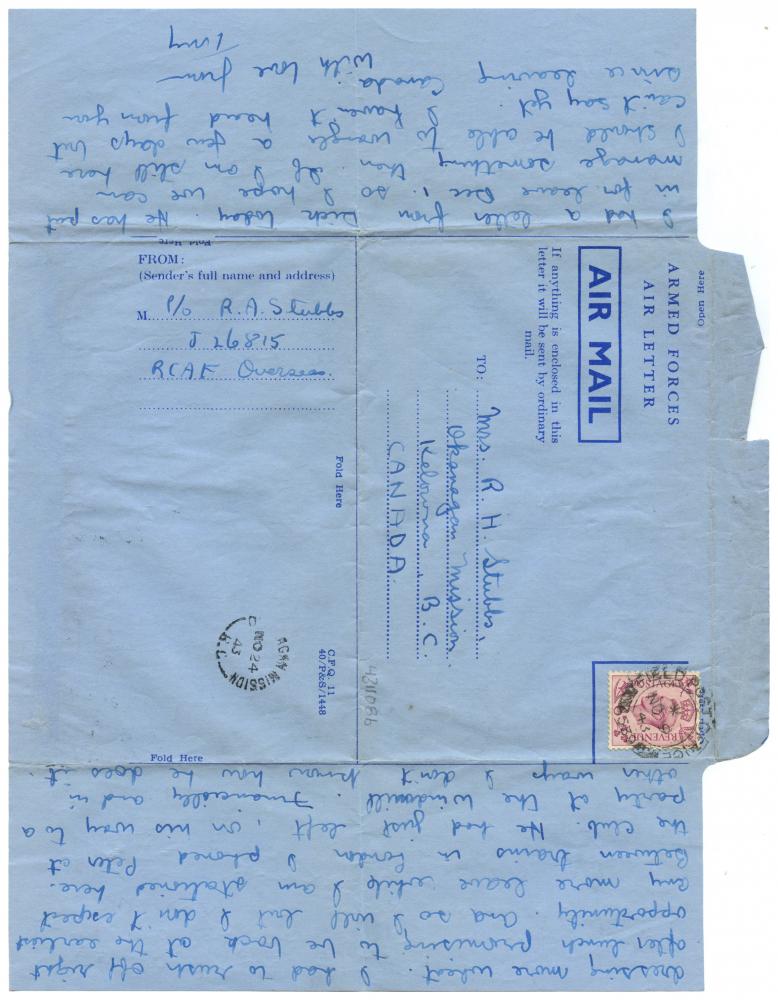 dressing more whist. I had to rush off right
after lunch promising to be back at the earliest
opportunity. And so I will but I don't expect
any more leave while I am stationed here.
Between trains in London I phoned Peter at
the club. He had just left, on his way to a
party at the Windmill. Financially and in
other ways I don't know how he does it.
I had a letter from Dick today. He has put
in for leave Dec 1. so I hope we can
manage something then. If I am still here
I should be able to wrangle a few days but
can't say yet. I haven't heard from you
since leaving Canada.
With love from
Tony
Fold Here
FROM:
(Sender's full name and address)
M. P/O R.A. Stubbs
J 26815
RCAF Overseas.
Fold Here
Open Here
ARMED FORCES
AIR LETTER
AIR MAIL
If anything is enclosed in this
letter it will be sent by ordinary
mail.
TO: Mrs. R. H. Stubbs,
Okanagan Mission
Kelowna, B.C.
CANADA.
REVENUE
FIELD POST OFFICE
NO
43
C.F.Q. 11
40/P&S/1448
AGAN MISSION
NO 24
43
B.C.
Fold Here